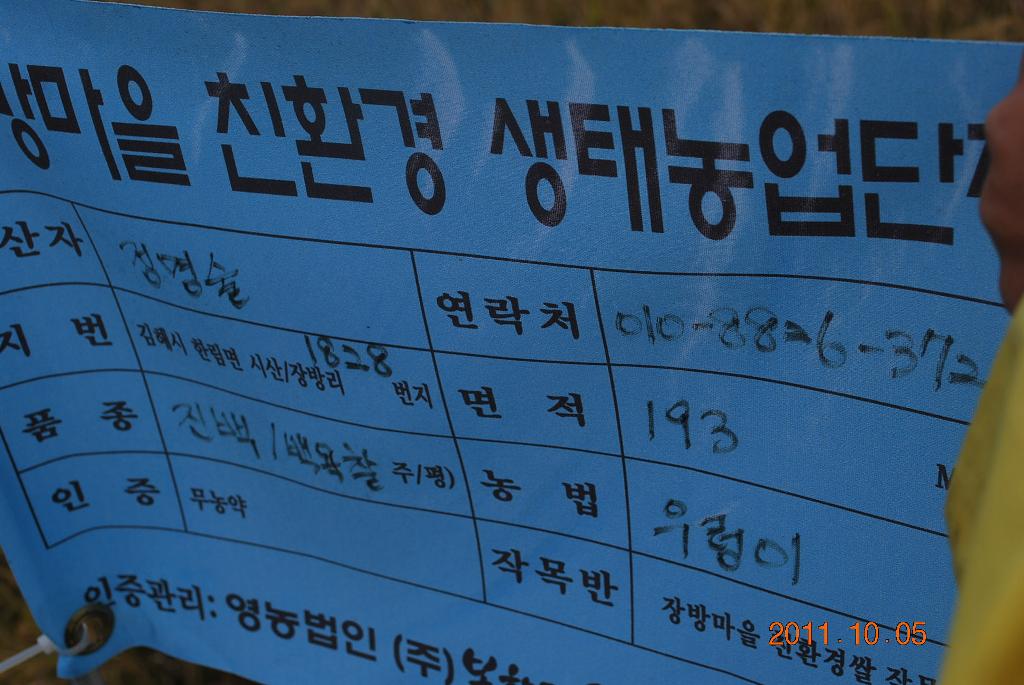 방마을 친환경 생태농업단
산자 정경술 연락처 010-8826-372
지 번 김해시 한림면 시산/장방리 1828 번지 면 적 193 M
품 종 진백/백옥찰 주/평) 농 법 우렁이
인 증 무농약 작목반 장방마을 친환경쌀 작목
인증관리: 영농법인 (주)
2011.10.05